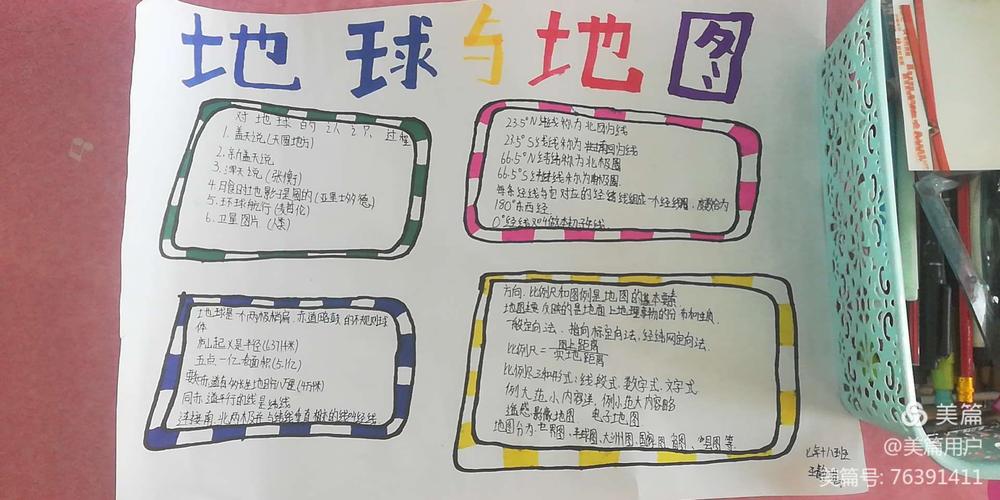 地球与地图
对地球的认识过程
1.盖天说(天圆地方)
2.新盖天说
3.浑天说(张衡)
4.月食时地影是圆的(亚里士多德)
5.环球航行(麦哲伦)
6.卫星图片(人类)
23.5°N纬线称为北回归线
23.5°S纬线称为南回归线
66.5°N纬线称为北极圈
66.5°S纬线称为南极圈
每条经线与它对应的经线组成一个经线圈,度数合为
180°东西经
0°经线又叫做本初子午线
地球是一个两极稍扁,赤道略鼓的不规则球
体
是半径(6371千米)
五点一亿,表面积(5.1亿)
赤道(4万千米)
同赤道平行的线是纬线
连接南、北两极并与纬线垂直相交的线叫经线
方向、比例尺和图例是地图的基本要素
地图反映的是地面上地理事物的分布和
一般定向法、指向标定向法,经纬网定向法
比例尺=图上距离
实地距离
比例尺三种形式:线段式,数字式,文字式
例大范小内容详,例小范大内容略
遥感影像地图 电子地图
地图分为世界图、半球图,大洲图,国家图,省图、图等
七年十八班
美篇
@美篇用户
美篇号:76391411